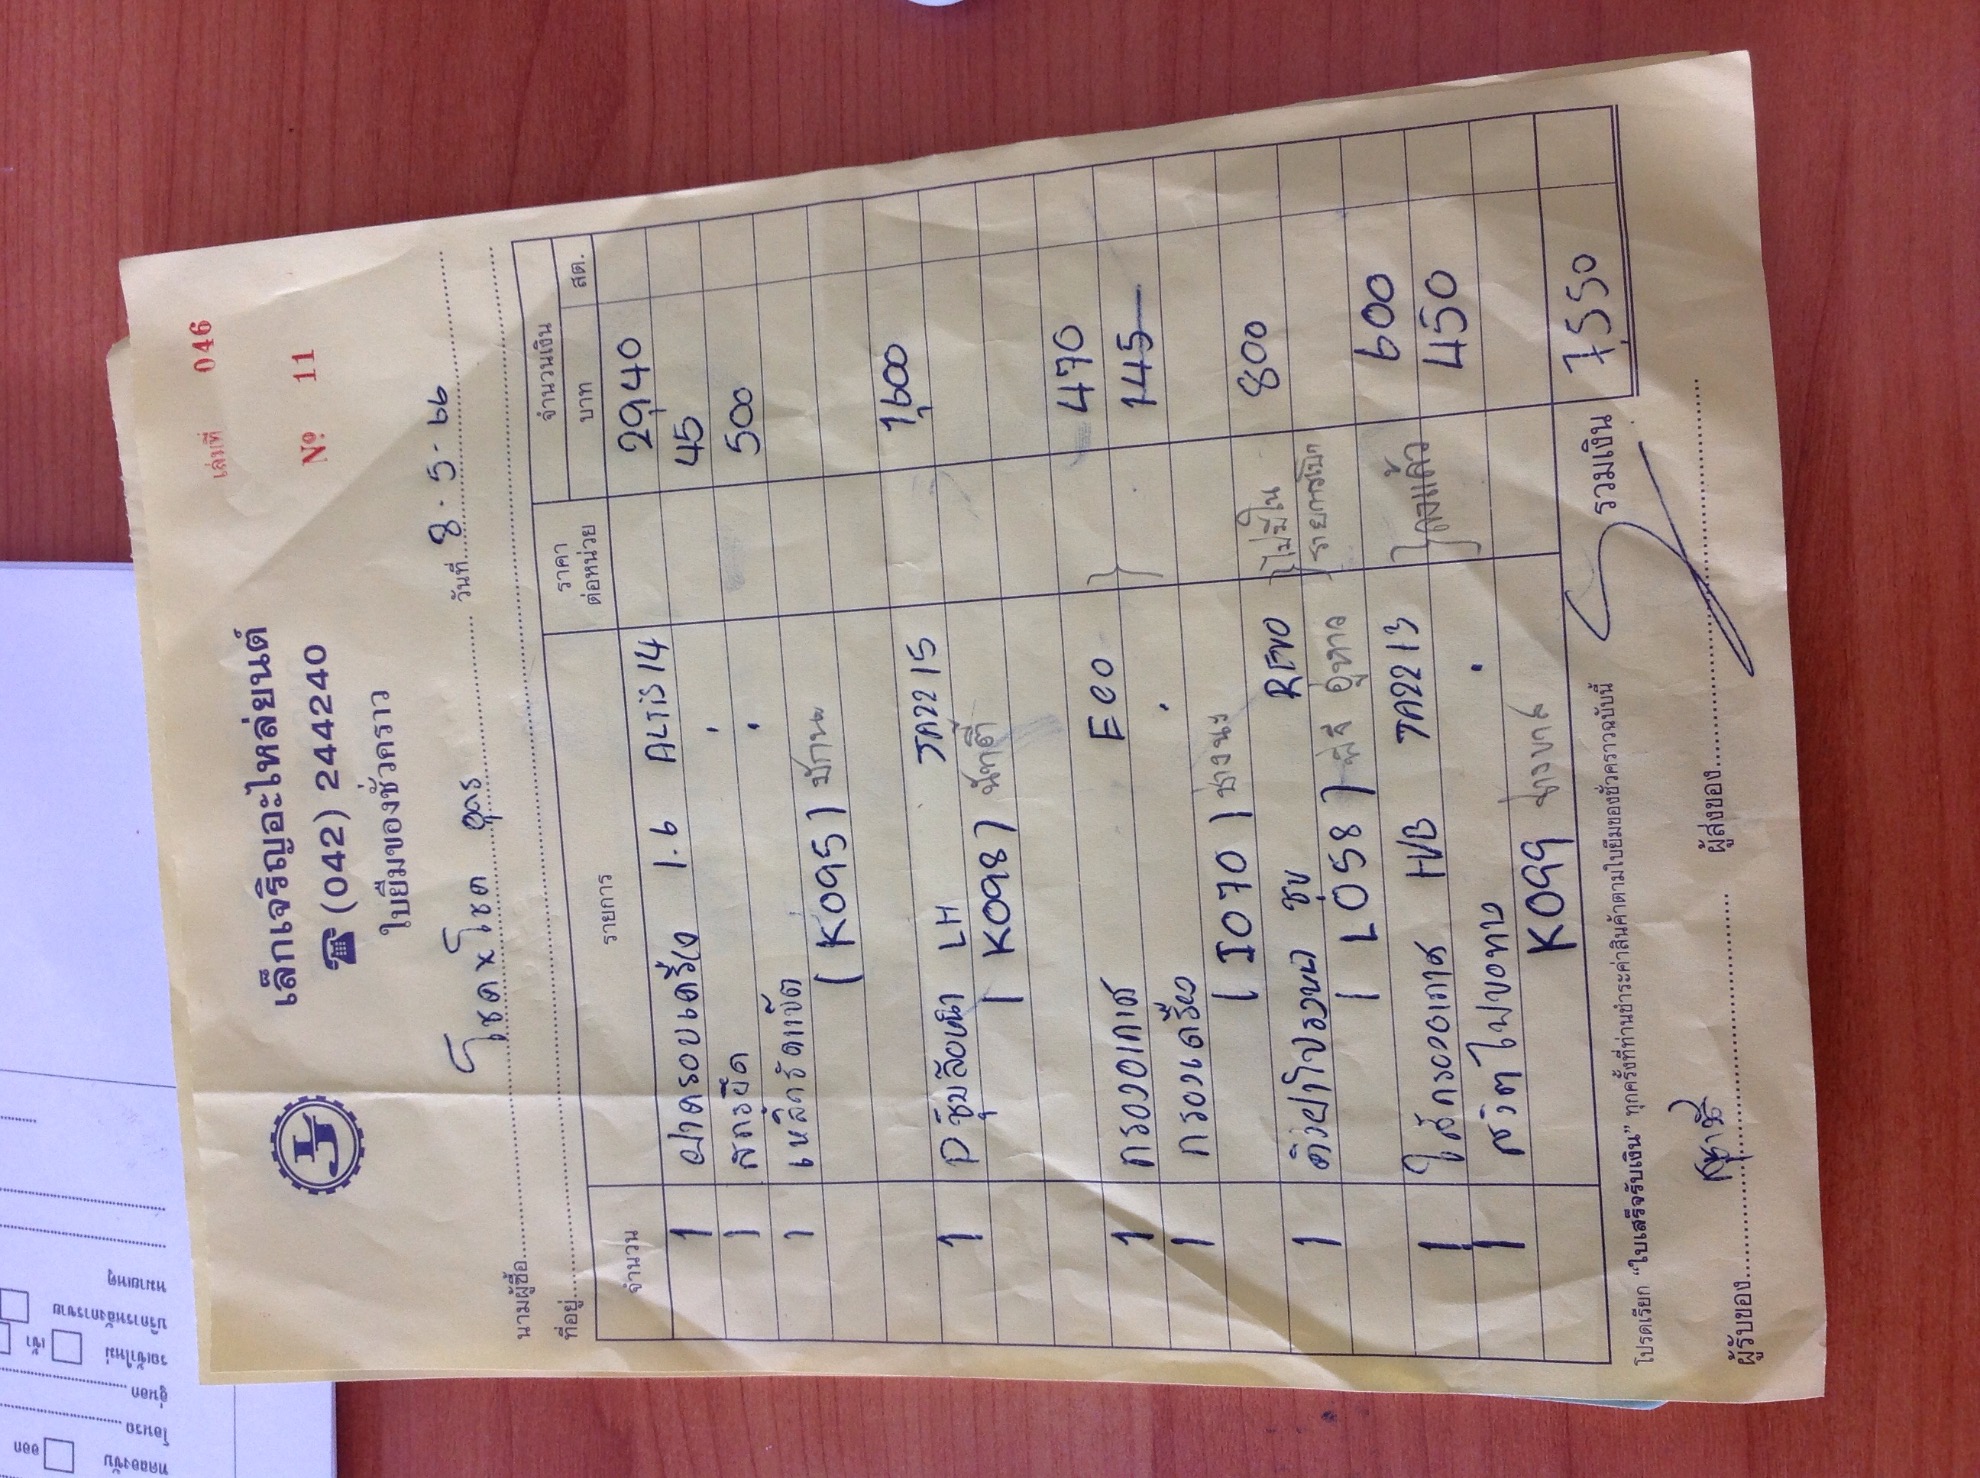 เล่มที่ 046
№ 11
เล็กเจริญอะไหล่ยนต์
☎ (042) 244240
ใบยืมของชั่วคราว
นามผู้ซื้อ โชค x โชค อุดร วันที่ 8-5-66
ที่อยู่
จำนวน รายการ ราคาต่อหน่วย จำนวนเงิน บาท สต.
1 ฝาครอบเครื่อง 1.6 ALTIS 14 2,940
1 สกรยึด " 45
1 เหล็กรัดแข้ต " 500
(K095)
1 ปุ้มบังหน้า LH 15 1,600
(K098)
1 กรองอากาศ Eco 470
1 กรองเครื่อง " 145
(I070)
1 คิ้วฝาโปรงหน้า ชุบ REVO ไม่มีใน 800
(L058) รายการเบิก
1 ไส้กรองอากาศ H/B 13 ลงแล้ว 600
1 450
K099
รวมเงิน 7,550
โปรดเรียก "ใบเสร็จรับเงิน" ทุกครั้งที่ท่านชำระค่าสินค้าตามใบยืมของชั่วคราวฉบับนี้
ผู้รับของ ผู้ส่งของ
หมายเหตุ
บริการหลังการขาย
รถเข้าใหม่ เช้า
อู่นอก
โอนรถ
ทดลองขับ ออก